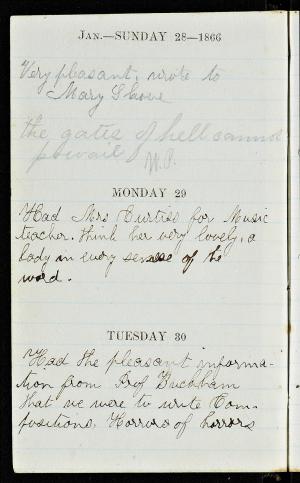 JAN.—SUNDAY 28—1866
Very pleasant; wrote to
Mary
the gates of hell cannot
prevail
MONDAY 29
Had Mrs Curtiss for Music
teacher. think her very lovely, a
lady in every sense of the
word.
TUESDAY 30
Had the pleasant informa-
tion from Prof Buckham
that we were to write Com-
positions. Horrors of horrors